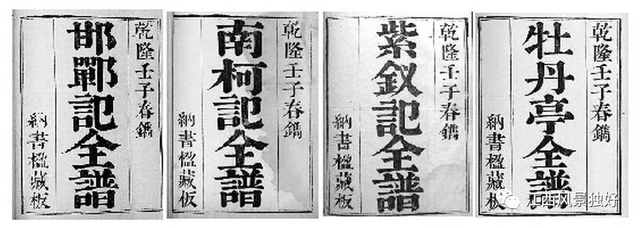 乾隆壬子春鐫
邯鄲記全譜
納書楹藏板
乾隆壬子春鐫
南柯記全譜
納書楹藏板
乾隆壬子春鐫
紫釵記全譜
納書楹藏板
乾隆壬子春鐫
牡丹亭全譜
納書楹藏板
江西风景独好